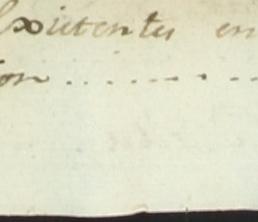 Existentes en
on ..........